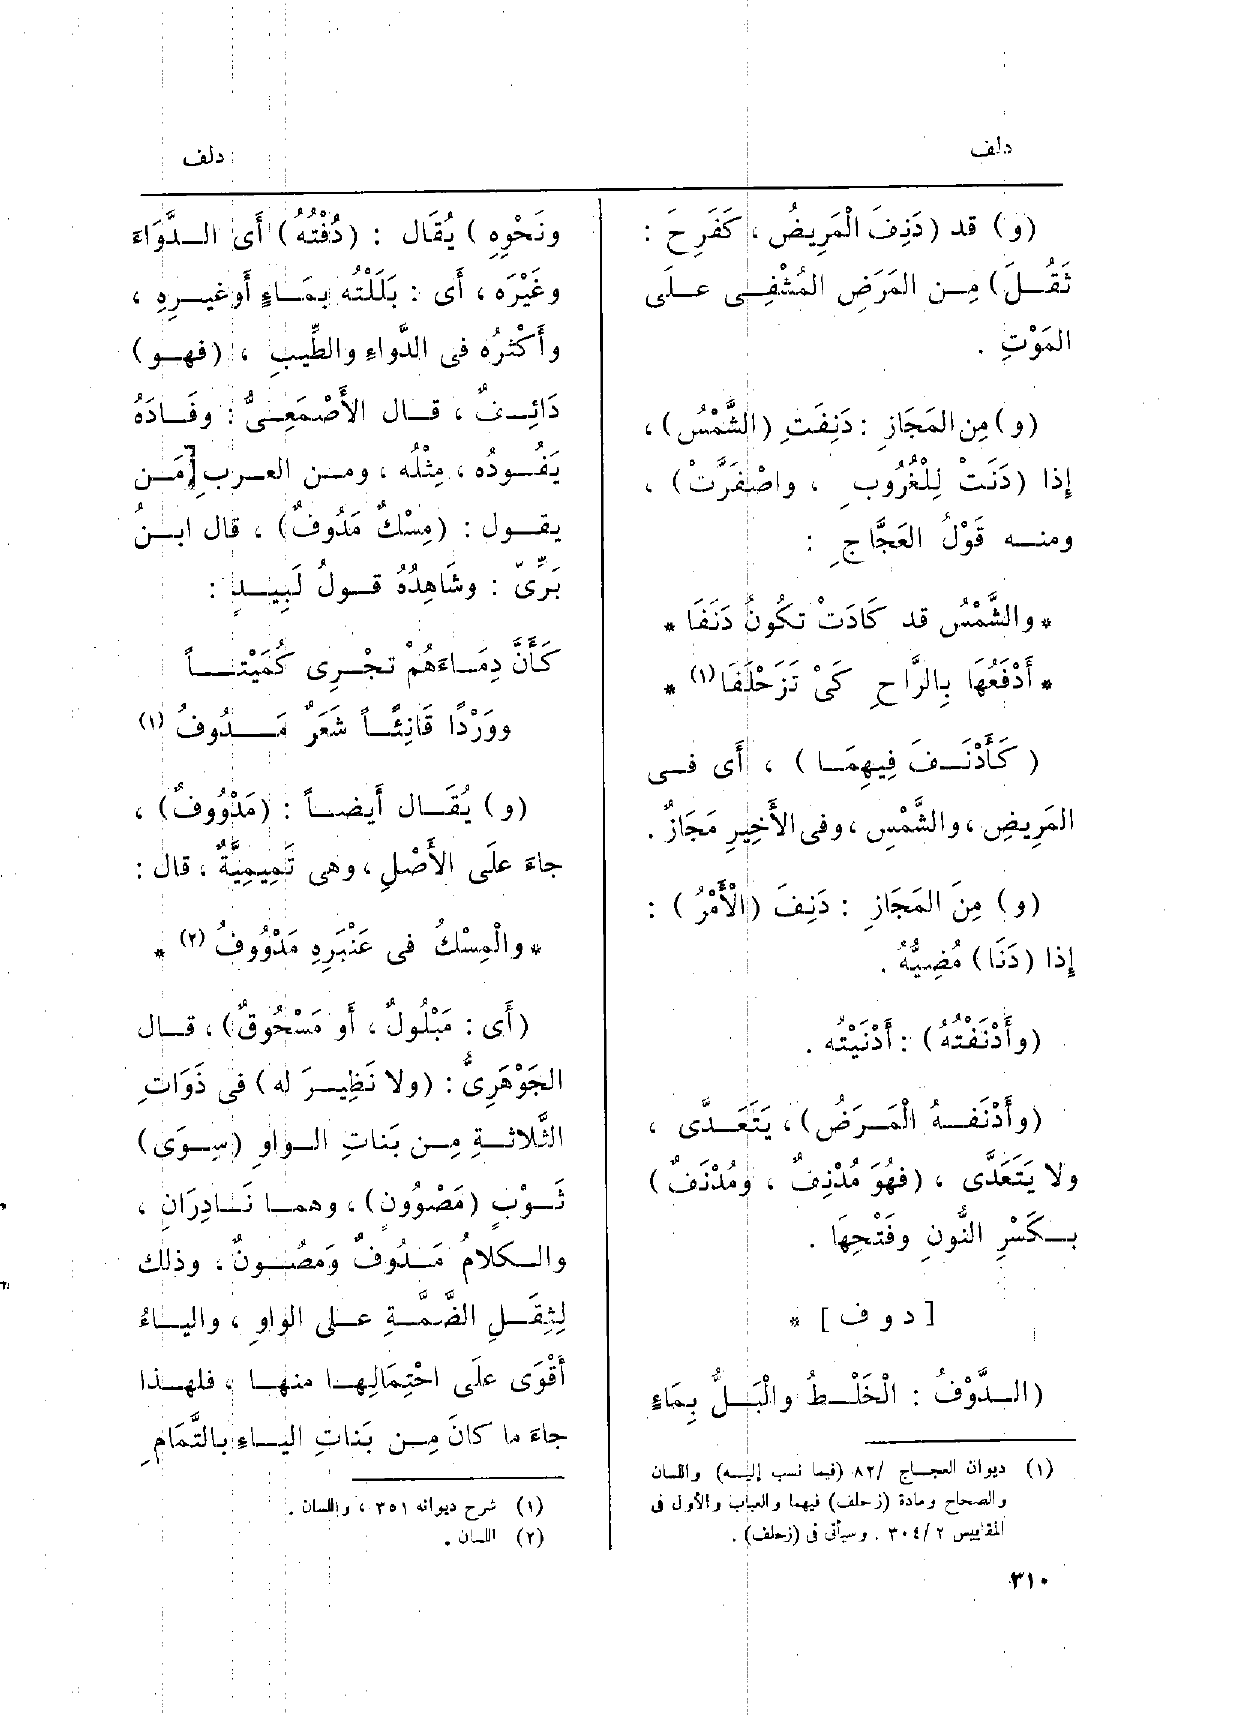 دلف
دلف
(و) قد (دَنِفَ الْمَرِيضُ ، كَفَرِحَ :
ثَقُلَ) مِن المَرَضِ المُشْفِى علَى
المَوْتِ .
(و) مِن المَجَازِ : دَنِفَتِ (الشَّمْسُ) ،
إذا (دَنَتْ لِلْغُرُوبِ ، واصْفَرَّتْ) ،
ومنه قَوْلُ العَجَّاجِ :
* والشَّمْسُ قد كَادَتْ تكُونُ دَنَفَا *
* أَدْفَعُهَا بِالرَّاحِ كَىْ تَزَحْلَفَا (١) *
( كَأَدْنَفَ فِيهِمَا ) ، أَى فى
المَرِيضِ ، والشَّمْسِ ، وفى الأَخِيرِ مَجَازٌ .
(و) مِنَ المَجَازِ : دَنِفَ (الْأَمْرُ) :
إذا (دَنَا) مُضِيُّهُ .
(وأَدْنَفْتُهُ) : أَدْنَيْتُه .
(وأَدْنَفهُ الْمَرَضُ) ، يَتَعَدَّى ،
ولا يَتَعَدَّى ، (فَهُوَ مُدْنِفٌ ، ومُدْنَفٌ)
بكَسْرِ النُّونِ وفَتْحِهَا .
[ د و ف ] *
(الدَّوْفُ : الْخَلْطُ والْبَلُّ بِمَاءٍ
(١) ديوان العجاج /٨٢ (فيما نسب إليه) واللسان
والصحاح ومادة (زحلف) فيهما والعباب والأول فى
المقاييس ٣٠٤/٢ . وسيأتى فى (زحلف) .
ونَحْوِهِ) يُقَال : (دُفْتُهُ) أَى الدَّوَاءَ
وغَيْرَه ، أَى : بَلَلْتُه بِمَاءٍ أوغيرِهِ ،
وأَكْثرُه فى الدَّواءِ والطِّيبِ ، (فهو)
دَائِفٌ ، قال الأَصْمَعِىُّ : وفَادَهُ
يَفُودُه ، مِثْلُه ، ومن العربِ [مَن
يقول : (مِسْكٌ مَدُوفٌ) ، قال ابنُ
بَرِّىّ : وشَاهِدُهُ قولُ لَبِيدٍ :
كَأَنَّ دِمَاءَهُمْ تجْرِى كُمَيْتاً
ووَرْدًا قَانِئاً شَعَرٌ مَدُوفُ (١)
(و) يُقَال أَيضاً : (مَدْوُوفٌ) ،
جاءَ علَى الأَصْلِ ، وهى تَمِيمِيَّةٌ ، قال :
* والْمِسْكُ فى عَنْبَرِهِ مَدْوُوفُ (٢) *
(أَى : مَبْلُولٌ ، أَو مَسْحُوقٌ) ، قال
الجَوْهَرِىُّ : (ولا نَظِيرَ له) فى ذَوَاتِ
الثَّلاثةِ مِن بَناتِ الواوِ (سِوَى)
ثَوْبٍ (مَصْوُونٍ) ، وهما نَادِرَانِ ،
والكلامُ مَدُوفٌ وَمَصُونٌ ، وذلك
لِثِقَلِ الضَّمَّةِ على الواوِ ، والياءُ
أَقْوَى علَى احْتِمَالِها منها ، فلهذا
جاءَ ما كانَ مِن بَناتِ الياءِ بالتَّمَامِ
(١) شرح ديوانه ٣٥١ ، واللسان .
(٢) اللسان .
٣١٠